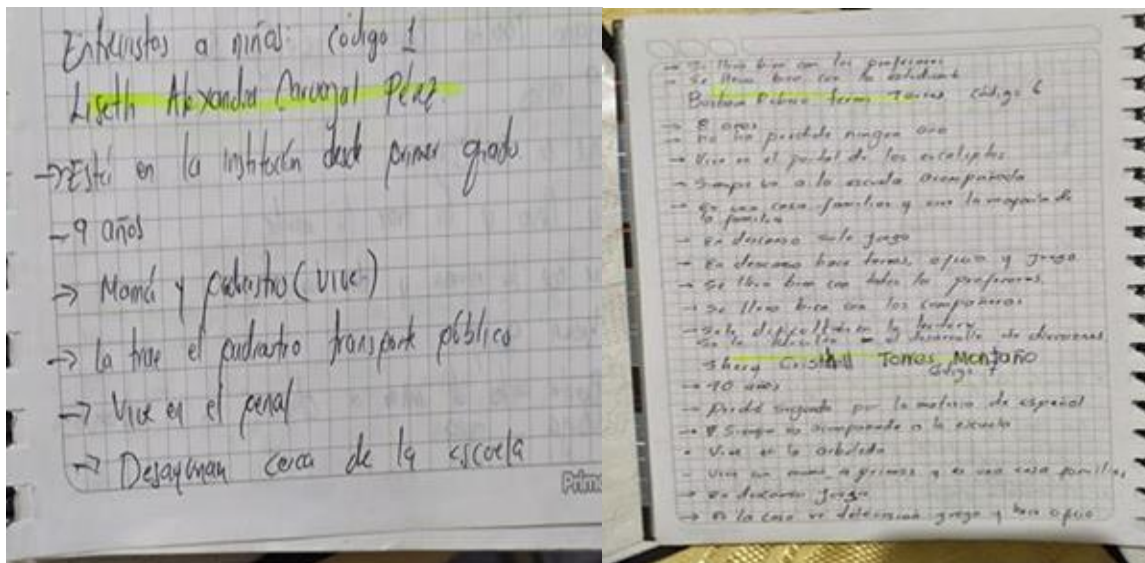 Entrevistas a niños: código 1
Liseth Alexandra Carvajal Pérez
→ Está en la institución desde primer grado
- 9 años
→ Mamá y padrastro (vive)
→ La trae el padrastro transporte público
→ Vive en el penal
→ Desayunan cerca de la escuela
Prim
→ Se lleva bien con los profesores
→ Se lleva bien con
código 6
→ 8 años
→ no ha perdido ningun año
→ Vive en el portal de los eucaliptos
→ Siempre va a la escuela acompañada
→ Es una casa familiar y vive la mayoría de
la familia
→ En descanso solo juega
→ En descanso hace tareas, oficio y juega
→ Se lleva bien con todos los profesores
→ Se lleva bien con los compañeros
→ dificultad en la lectura
Torres Montaño
código 7
→ 10 años
→ Perdió segundo por la materia de español
→ Siempre va acompañada a la escuela
• Vive en la arboleda
- Vive con mamá primos y es una casa familiar
→ En descanso juega
→ En la casa ve television juega y hace oficio